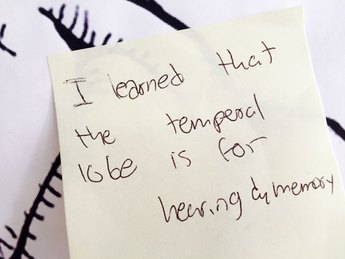 I learned that
the temporal
lobe is for
hearing & memory